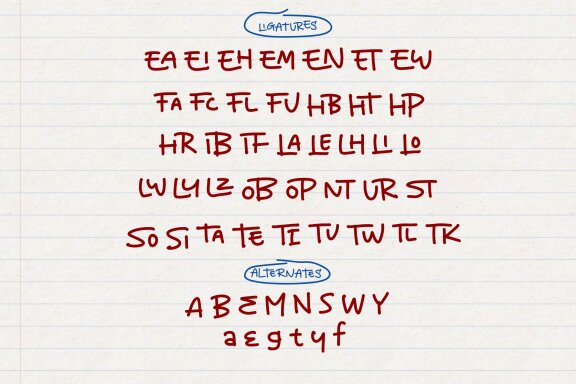 LIGATURES
EA EI EH EM EN ET EW
FA FC FL FU HB HT HP
HR IB IF LA LE LH LI LO
LW LY LZ OB OP NT UR ST
SO SI TA TE TI TU TW TL TK
ALTERNATES
A B E M N S W Y
a ε g t y f